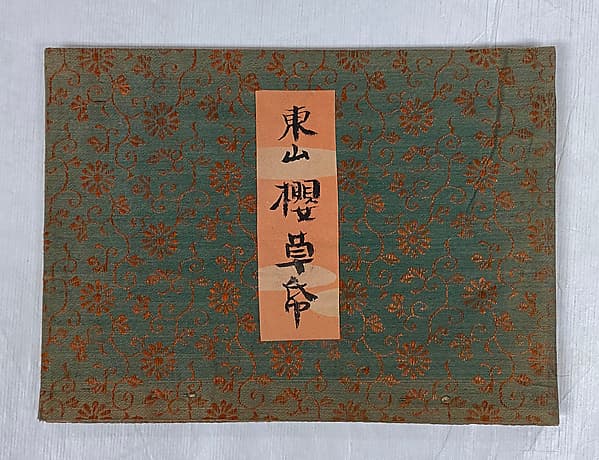 東山櫻草帋